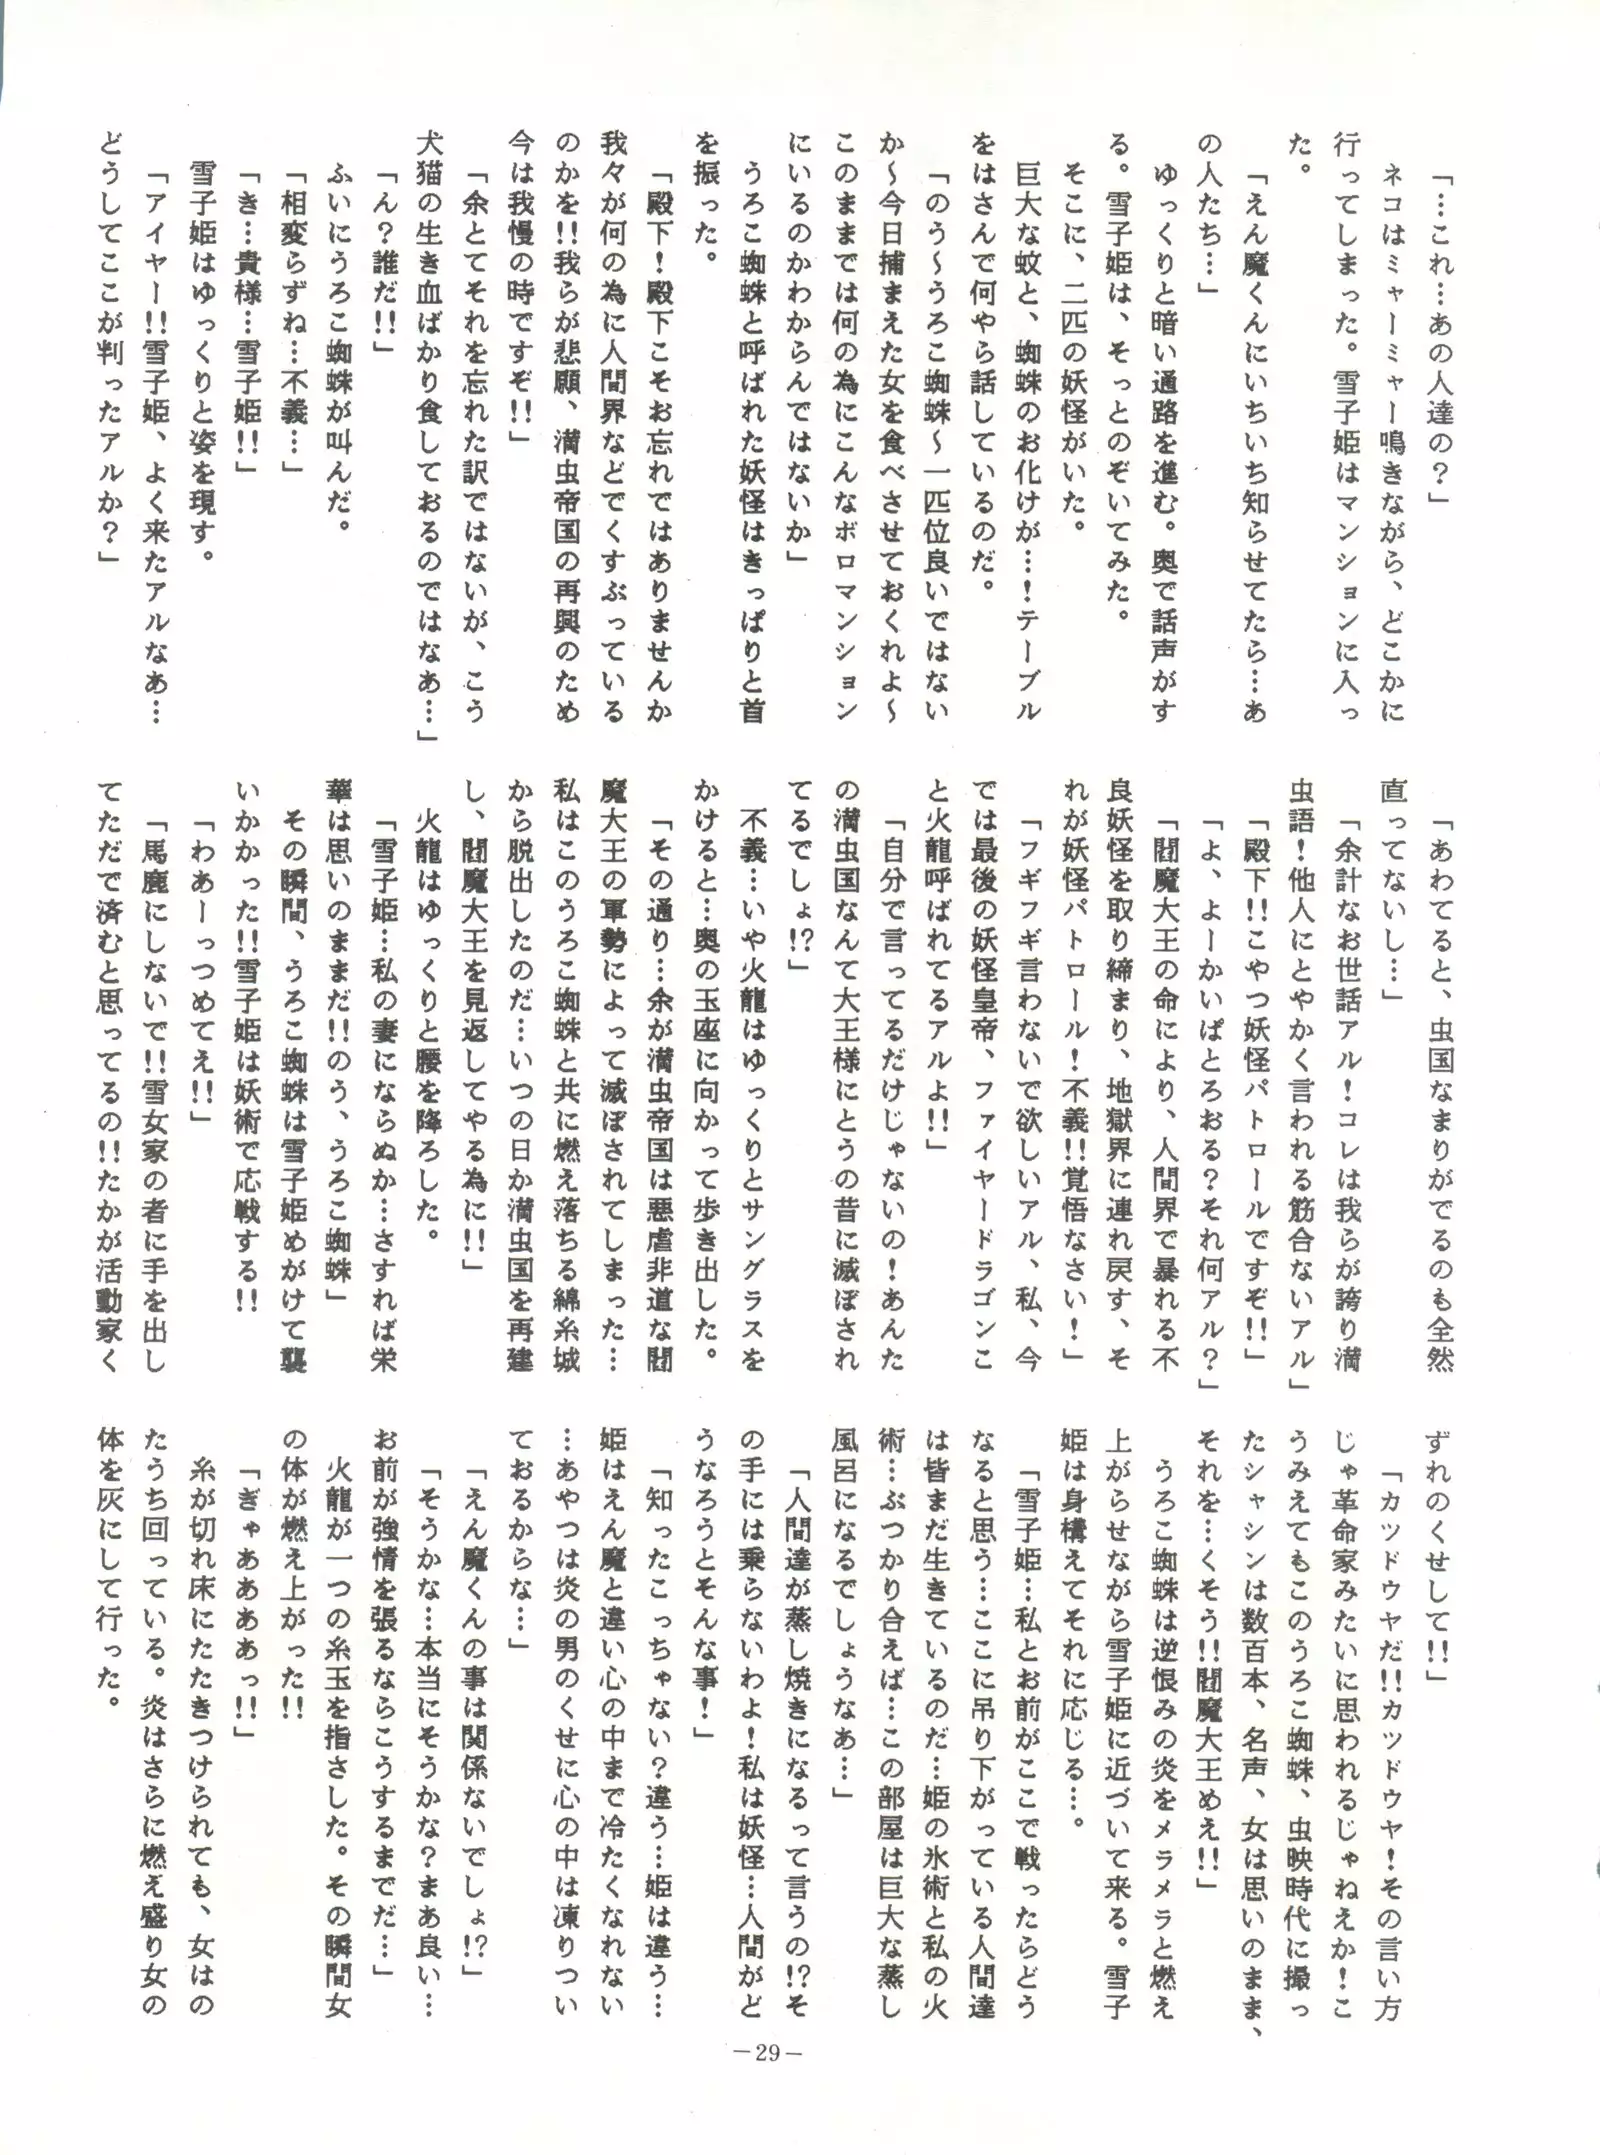 「…これ…あの人達の？」
ネコはミャーミャー鳴きながら、どこかに
行ってしまった。雪子姫はマンションに入っ
た。
「えん魔くんにいちいち知らせてたら…あ
の人たち…」
ゆっくりと暗い通路を進む。奥で話声がす
る。雪子姫は、そっとのぞいてみた。
そこに、二匹の妖怪がいた。
巨大な蚊と、蜘蛛のお化けが…！テーブル
をはさんで何やら話しているのだ。
「のう～うろこ蜘蛛～一匹位良いではない
か～今日捕まえた女を食べさせておくれよ～
このままでは何の為にこんなボロマンション
にいるのかわからんではないか」
うろこ蜘蛛と呼ばれた妖怪はきっぱりと首
を振った。
「殿下！殿下こそお忘れではありませんか
我々が何の為に人間界などでくすぶっている
のかを!!我らが悲願、満虫帝国の再興のため
今は我慢の時ですぞ!!」
「余とてそれを忘れた訳ではないが、こう
犬猫の生き血ばかり食しておるのではなぁ…」
「ん？誰だ!!」
ふいにうろこ蜘蛛が叫んだ。
「相変らずね…不義…」
「き…貴様…雪子姫!!」
雪子姫はゆっくりと姿を現す。
「アイヤー!!雪子姫、よく来たアルなぁ…
どうしてここが判ったアルか？」
「あわてると、虫国なまりがでるのも全然
直ってないし…」
「余計なお世話アル！コレは我らが誇り満
虫語！他人にとやかく言われる筋合ないアル」
「殿下!!こやつ妖怪パトロールですぞ!!」
「よ、よーかいぱとろおる？それ何アル？」
「閻魔大王の命により、人間界で暴れる不
良妖怪を取り締まり、地獄界に連れ戻す、そ
れが妖怪パトロール！不義!!覚悟なさい！」
「フギフギ言わないで欲しいアル、私、今
では最後の妖怪皇帝、ファイヤードラゴンこ
と火龍呼ばれてるアルよ!!」
「自分で言ってるだけじゃないの！あんた
の満虫国なんて大王様にとうの昔に滅ぼされ
てるでしょ!?」
不義…いや火龍はゆっくりとサングラスを
かけると…奥の玉座に向かって歩き出した。
「その通り…余が満虫帝国は悪虐非道な閻
魔大王の軍勢によって滅ぼされてしまった…
私はこのうろこ蜘蛛と共に燃え落ちる綿糸城
から脱出したのだ…いつの日か満虫国を再建
し、閻魔大王を見返してやる為に!!」
火龍はゆっくりと腰を降ろした。
「雪子姫…私の妻にならぬか…さすれば栄
華は思いのままだ!!のう、うろこ蜘蛛」
その瞬間、うろこ蜘蛛は雪子姫めがけて襲
いかかった!!雪子姫は妖術で応戦する!!
「わあーっつめてえ!!」
「馬鹿にしないで!!雪女家の者に手を出し
てただで済むと思ってるの!!たかが活動家く
ずれのくせして!!」
「カッドウヤだ!!カツドウヤ！その言い方
じゃ革命家みたいに思われるじゃねえか！こ
うみえてもこのうろこ蜘蛛、虫映時代に撮っ
たシャシンは数百本、名声、女は思いのまま、
それを…くそう!!閻魔大王めえ!!」
うろこ蜘蛛は逆恨みの炎をメラメラと燃え
上がらせながら雪子姫に近づいて来る。雪子
姫は身構えてそれに応じる…。
「雪子姫…私とお前がここで戦ったらどう
なると思う…ここに吊り下がっている人間達
は皆まだ生きているのだ…姫の氷術と私の火
術…ぶつかり合えば…この部屋は巨大な蒸し
風呂になるでしょうなあ…」
「人間達が蒸し焼きになるって言うの!?そ
の手には乗らないわよ！私は妖怪…人間がど
うなろうとそんな事！」
「知ったこっちゃない？違う…姫は違う…
姫はえん魔と違い心の中まで冷たくなれない
…あやつは炎の男のくせに心の中は凍りつい
ておるからな…」
「えん魔くんの事は関係ないでしょ!?」
「そうかな…本当にそうかな？まあ良い…
お前が強情を張るならこうするまでだ…」
火龍が一つの糸玉を指さした。その瞬間女
の体が燃え上がった!!
「ぎゃああああっ!!」
糸が切れ床にたたきつけられても、女はの
たうち回っている。炎はさらに燃え盛り女の
体を灰にして行った。
－29－